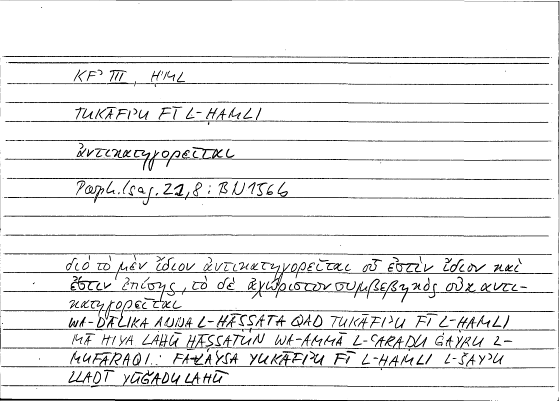 KFʾ III, ḤML
TUKĀFIʾU FĪ L-ḤAMLI
ἀντικατηγορεῖται
Porph. Isag. 21,8 : BN156b
διὸ τὸ μὲν ἴδιον ἀντικατηγορεῖται οὗ ἐστὶν ἴδιον καὶ
ἔστιν ἐπίσης, τὸ δὲ ἀχώριστον συμβεβηκὸς οὐκ ἀντι-
κατηγορεῖται
WA-ḎĀLIKA ANNA L-ḪĀṢṢATA QAD TUKĀFIʾU FĪ L-ḤAMLI
MĀ HIYA LAHŪ ḪĀṢṢATUN WA-AMMĀ L-ʿARAḌU ĠAYRU L-
MUFĀRAQI : FA-LAYSA YUKĀFIʾU FĪ L-ḤAMLI L-ŠAYʾU
LLAḎĪ YŪǦADU LAHŪ